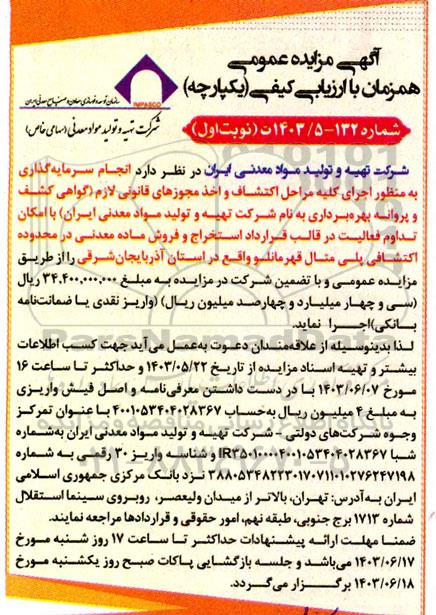 آگهی مزایده عمومی
همزمان با ارزیابی کیفی (یکپارچه)
IMPASCO
سازمان توسعه و نوسازی معادن و صنایع معدنی ایران
شرکت تهیه و تولید مواد معدنی (سهامی خاص)
شماره ۱۳۲-۱۴۰۳/۵ت (نوبت اول)
شرکت تهیه و تولید مواد معدنی ایران در نظر دارد انجام سرمایه‌گذاری
به منظور اجرای کلیه مراحل اکتشاف و اخذ مجوزهای قانونی لازم (گواهی کشف
و پروانه بهره‌برداری به نام شرکت تهیه و تولید مواد معدنی ایران) با امکان
تداوم فعالیت در قالب قرارداد استخراج و فروش ماده معدنی در محدوده
اکتشافی پلی متال قهرمانلو واقع در استان آذربایجان شرقی را از طریق
مزایده عمومی و با تضمین شرکت در مزایده به مبلغ ۳۴,۴۰۰,۰۰۰,۰۰۰ ریال
(سی و چهار میلیارد و چهارصد میلیون ریال) (واریز نقدی یا ضمانت‌نامه
بانکی) اجرا نماید.
لذا بدینوسیله از علاقه‌مندان دعوت به‌عمل می‌آید جهت کسب اطلاعات
بیشتر و تهیه اسناد مزایده از تاریخ ۱۴۰۳/۰۵/۲۲ و حداکثر تا ساعت ۱۶
مورخ ۱۴۰۳/۰۶/۰۷ با در دست داشتن معرفی‌نامه و اصل فیش واریزی
به مبلغ ۴ میلیون ریال به‌حساب ۴۰۰۱۰۵۳۴۰۴۰۲۸۳۶۷ با عنوان تمرکز
وجوه شرکت‌های دولتی - شرکت تهیه و تولید مواد معدنی ایران به‌شماره
شبا IR۳۵۰۱۰۰۰۰۴۰۰۱۰۵۳۴۰۴۰۲۸۳۶۷ و شناسه واریز ۳۰ رقمی به شماره
۳۸۸۰۵۳۴۸۲۲۳۰۱۷۰۷۱۱۰۱۰۲۷۶۲۴۷۱۹۸ نزد بانک مرکزی جمهوری اسلامی
ایران به آدرس: تهران، بالاتر از میدان ولیعصر، روبروی سینما استقلال
شماره ۱۷۱۳ برج جنوبی، طبقه نهم، امور حقوقی و قراردادها مراجعه نمایند.
ضمنا مهلت ارائه پیشنهادات حداکثر تا ساعت ۱۷ روز شنبه مورخ
۱۴۰۳/۰۶/۱۷ می‌باشد و جلسه بازگشایی پاکات صبح روز یکشنبه مورخ
۱۴۰۳/۰۶/۱۸ برگزار می‌گردد.